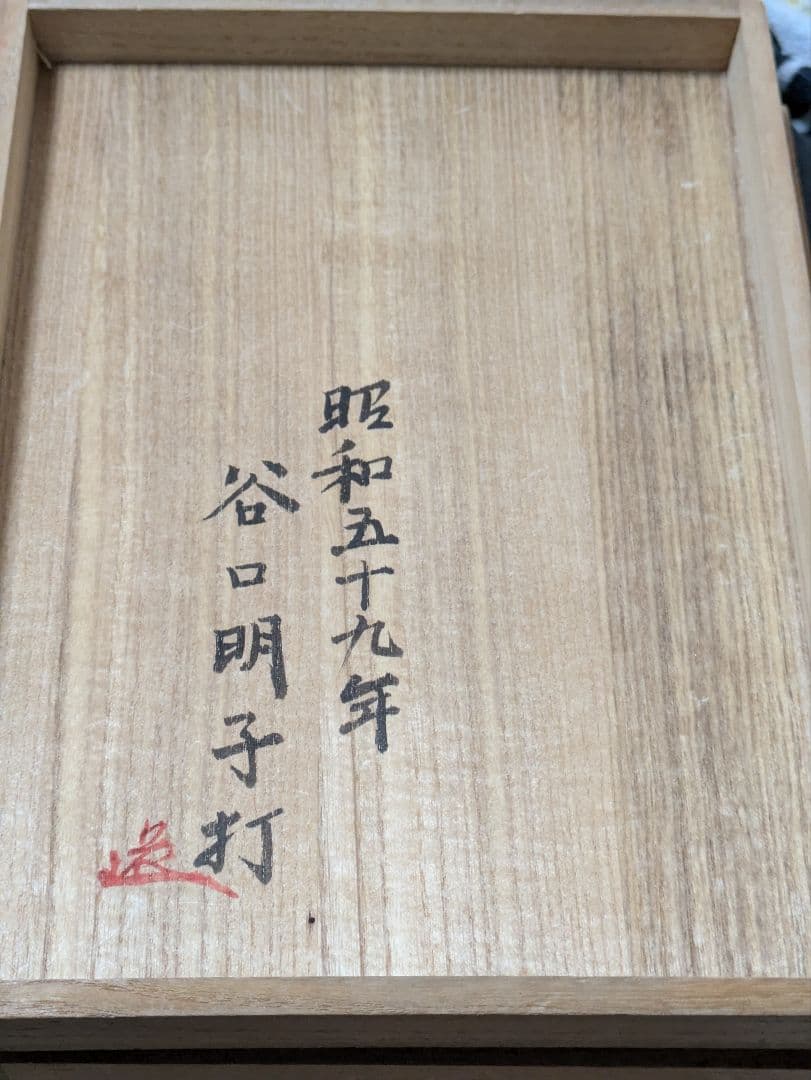 昭和五十九年
谷口明子打